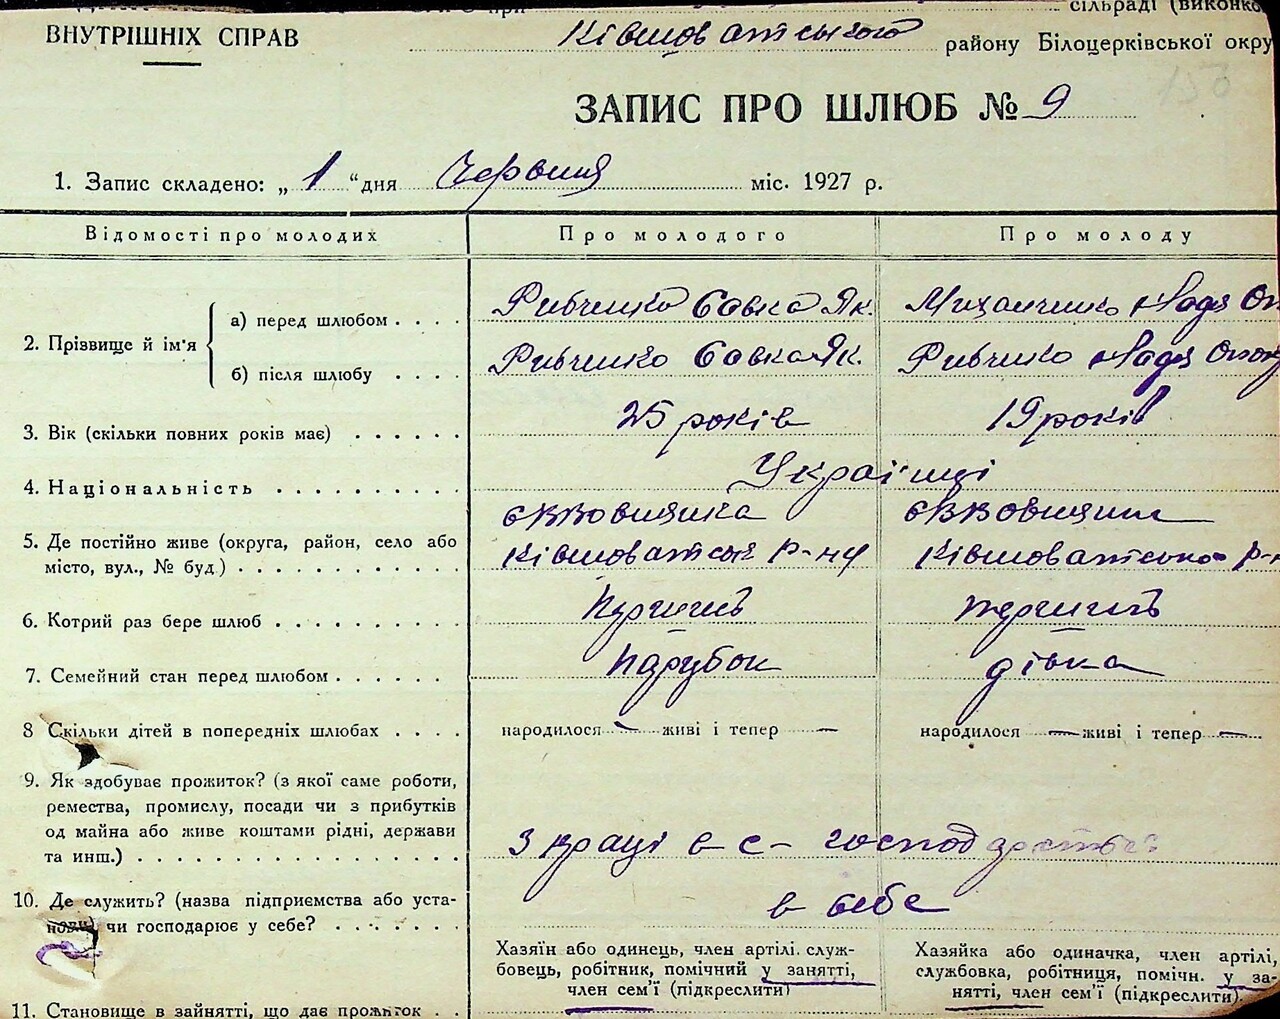 сільраді
ВНУТРІШНІХ СПРАВ Ківшоватського району Білоцерківської окру
150
ЗАПИС ПРО ШЛЮБ № 9
1. Запис складено: „ 1 “ дня Червня міс. 1927 р.
Відомості про молодих Про молодого Про молоду
2. Прізвище й ім'я
а) перед шлюбом . . . . Рибченко Савка Як. Михальченко Надя
б) після шлюбу . . . . Рибченко Савка Як. Рибченко Надя
3. Вік (скільки повних років має) . . . . . . 25 років 19 років
4. Національність . . . . . . . . . . Українці
5. Де постійно живе (округа, район, село або
місто, вул., № буд.) . . . . . . . . . . Ківшоватськ р-ну Ківшоватсько р-н
6. Котрий раз бере шлюб . . . . . . . . . Перший перший
7. Семейний стан перед шлюбом . . . . . . Парубок дівка
8 Скільки дітей в попередніх шлюбах . . . . народилося — живі і тепер — народилося — живі і тепер —
9. Як здобуває прожиток? (з якої саме роботи,
ремества, промислу, посади чи з прибутків
од майна або живе коштами рідні, держави
та инш.) . . . . . . . . . . . . . . . З праці в с-господарстві
10. Де служить? (назва підприємства або уста-
нови) чи господарює у себе? . . . . . . . в себе
Хазяїн або одинець, член артілі. служ-
бовець, робітник, помічний у занятті,
член сем'ї (підкреслити)
Хазяйка або одиначка, член артілі,
службовка, робітниця, помічн. у за-
нятті, член сем'ї (підкреслити).
11. Становище в зайнятті, що дає прожиток . .